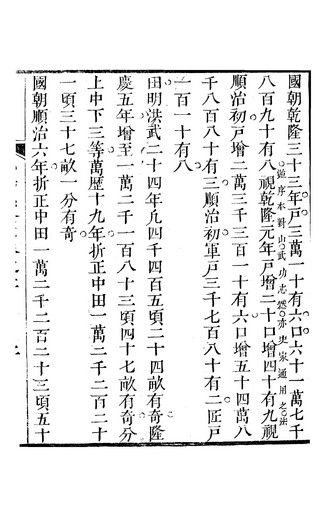 國朝乾隆三十三年戶三萬一十有六口六十一萬七千
八百九十有八視乾隆元年戶增二十口增四十有九視
遊序本對山武功志然亦史家通用之法
順治初戶增二萬三千三百一十有六口增五十四萬八
千八百八十有三順治初軍戶三千七百八十有二匠戶
一百一十有八
田明洪武二十四年凡四千四百五頃二十四畝有奇隆
慶五年增至一萬二千一百八十三頃四十七畝有奇分
上中下三等萬歷十九年折正中田一萬二千二百二十
一頃三十七畝一分有奇
國朝順治六年折正中田一萬二千二百二十三頃五十